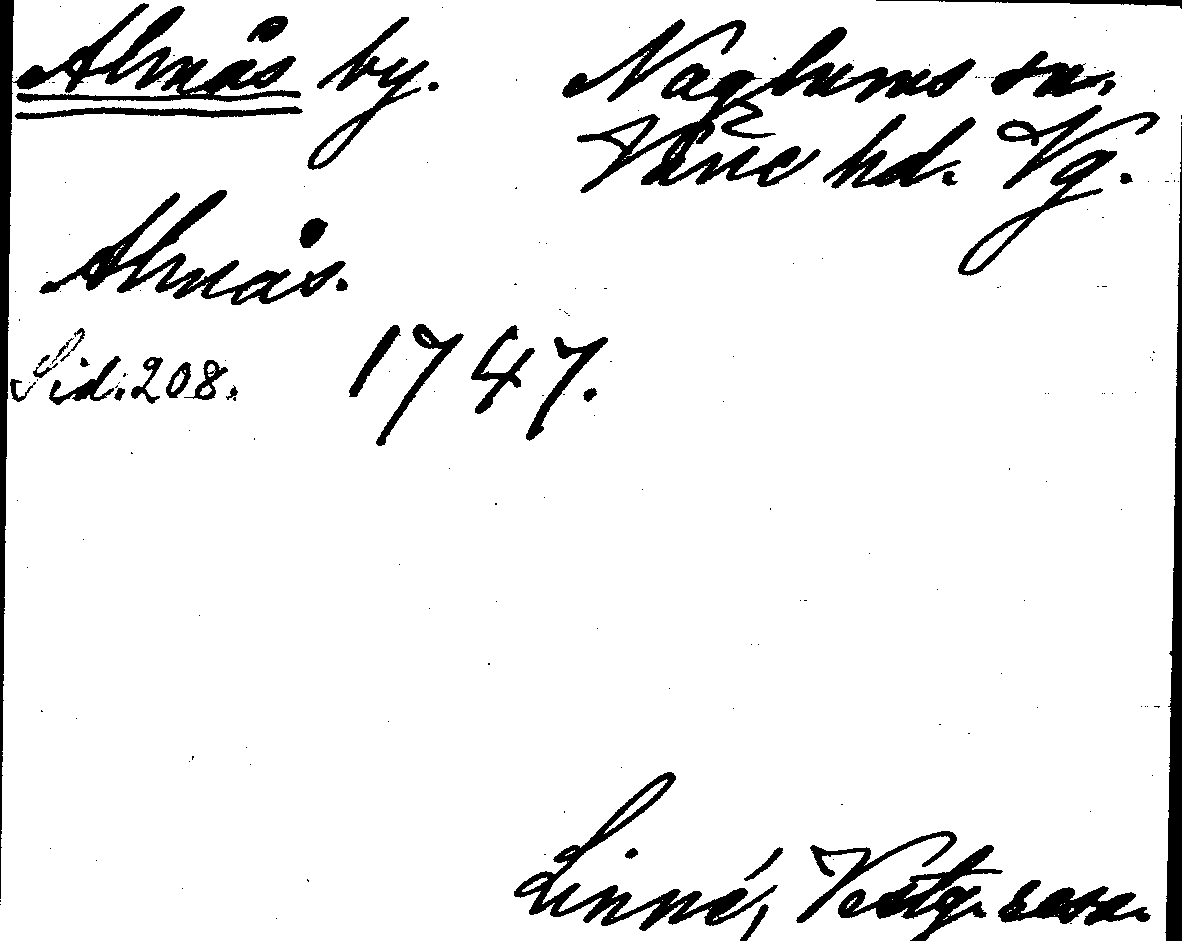 Almås by. Naglums sn.
Väne hd. Vg.
Almås.
Sid. 208. 1747.
Linné, Vestg. resa.